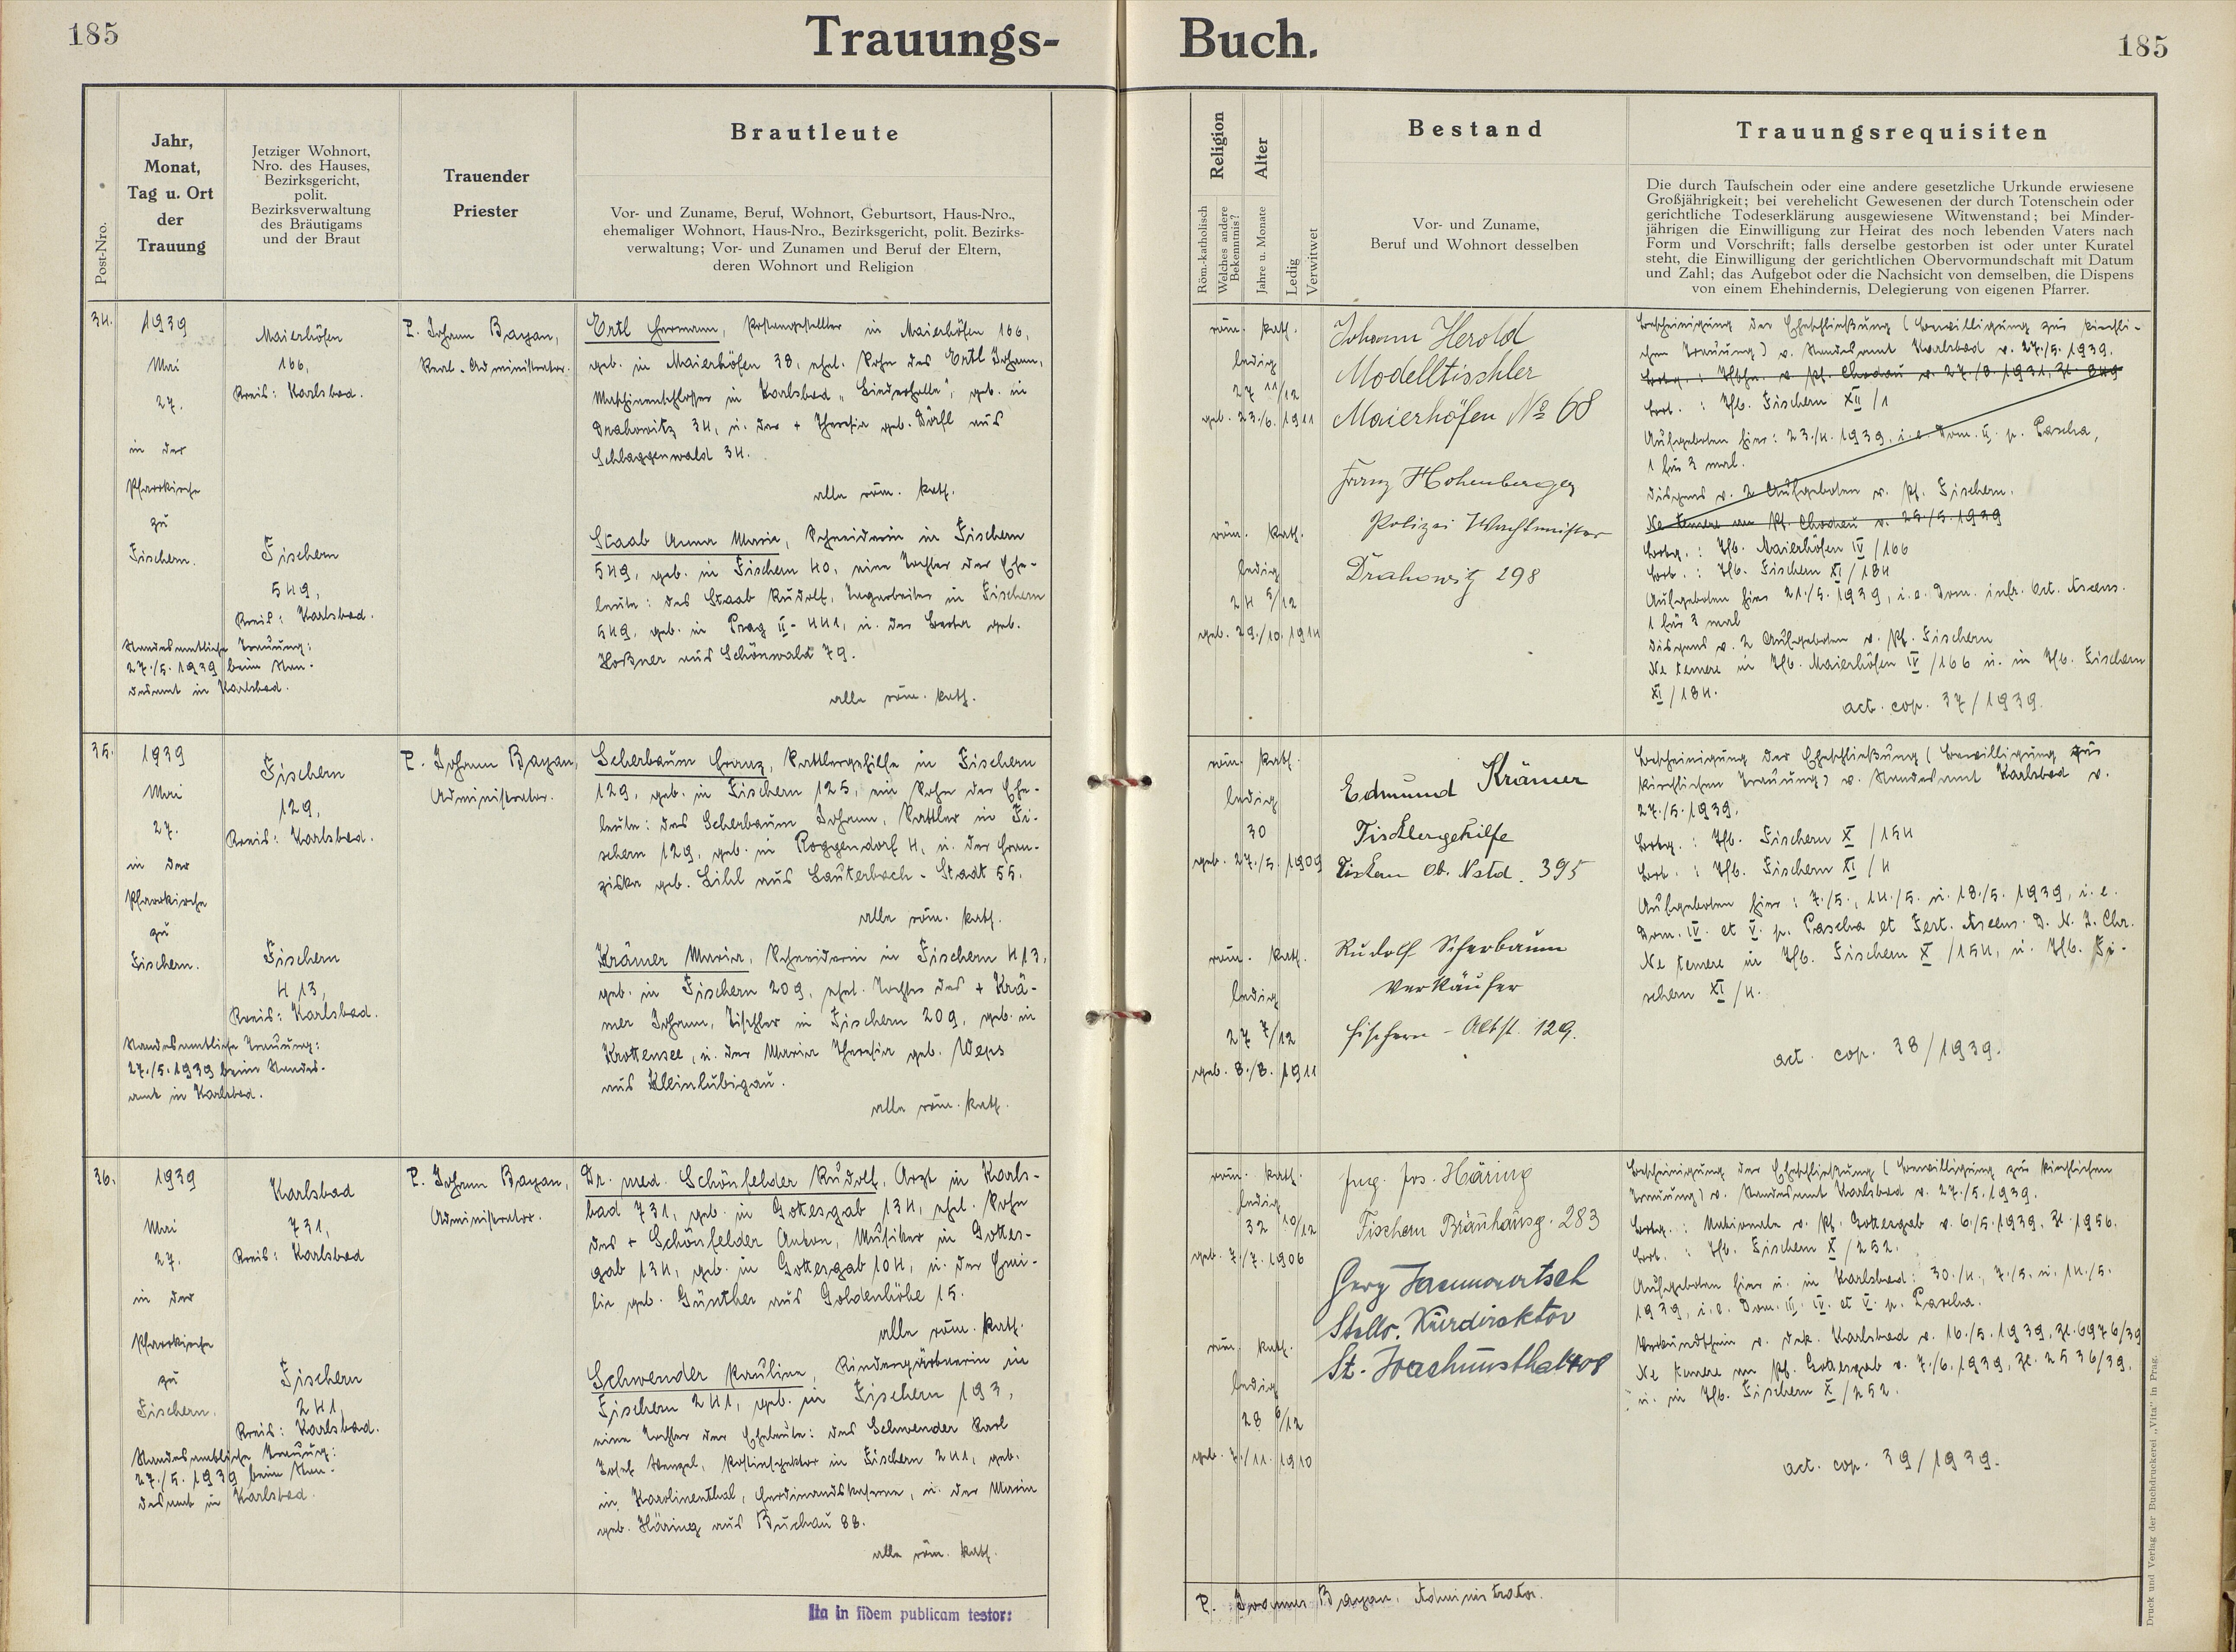 185
Trauungs-
Buch.
185
Post-Nro.
Jahr,
Monat,
Tag u. Ort
der
Trauung
Jetziger Wohnort,
Nro. des Hauses,
Bezirksgericht,
polit.
Bezirksverwaltung
des Bräutigams
und der Braut
Trauender
Priester
Brautleute
Vor- und Zuname, Beruf, Wohnort, Geburtsort, Haus-Nro.,
ehemaliger Wohnort, Haus-Nro., Bezirksgericht, polit. Bezirks-
verwaltung; Vor- und Zunamen und Beruf der Eltern,
deren Wohnort und Religion
Religion
Röm.-katholisch
Welches andere
Bekenntnis?
Alter
Jahre u. Monate
Ledig
Verwitwet
Bestand
Vor- und Zuname,
Beruf und Wohnort desselben
Trauungsrequisiten
Die durch Taufschein oder eine andere gesetzliche Urkunde erwiesene
Großjährigkeit; bei verehelicht Gewesenen der durch Totenschein oder
gerichtliche Todeserklärung ausgewiesene Witwenstand; bei Minder-
jährigen die Einwilligung zur Heirat des noch lebenden Vaters nach
Form und Vorschrift; falls derselbe gestorben ist oder unter Kuratel
steht, die Einwilligung der gerichtlichen Obervormundschaft mit Datum
und Zahl; das Aufgebot oder die Nachsicht von demselben, die Dispens
von einem Ehehindernis, Delegierung von eigenen Pfarrer.
34.
1939
Mai
27.
in der
Pfarrkirche
zu
Fischern.
Standesamtliche Trauung:
27./5. 1939 beim Stan-
desamt in Karlsbad.
Maierhöfen
166,
Kreis: Karlsbad.
Fischern
549,
Kreis: Karlsbad.
P. Johann Bayan,
Real-Administrator.
Ertl Hermann, Postangestellter in Maierhöfen 166,
geb. in Maierhöfen 38, ehel. Sohn des Ertl Johann,
Maschinenschlosser in Karlsbad "Linderhalle", geb. in
Drahowitz 34, u. der + Theresia geb. Dörfl aus
Schlaggenwald 34.
alle röm. kath.
Staab Anna Maria, Schneiderin in Fischern
549, geb. in Fischern 40, eine Tochter der Ehe-
leute: des Staab Rudolf, Tagarbeiter in Fischern
549, geb. in Prag II-441, u. der Berta geb.
Hoßner aus Schönwald 79.
alle röm. kath.
röm. kath.
ledig
27 11/12
geb. 23./6. 1911
röm. kath.
ledig
24 5/12
geb. 29./10. 1914
Johann Herold
Modelltischler
Maierhöfen No 68
Franz Hohenberger
Polizei Wachtmeister
Drahowitz 298
Bescheinigung der Eheschließung (Bewilligung zur kirchli-
chen Trauung) v. Standesamt Karlsbad v. 27./5. 1939.
Brtg.: Tfschn. v. Pf. Chodau v. 27./8. 1931, Zl. 849
Brt.: Tfb. Fischern XII/1
Aufgeboten hier: 23./4. 1939, i. e. Dom. II. p. Pascha,
1 für 3 mal.
Dispens v. 2 Aufgeboten v. Pf. Fischern.
Ne temere an Pf. Chodau v. 25./5. 1939
Brtg.: Tfb. Maierhöfen IV/166
Brt.: Tfb. Fischern XI/184
Aufgeboten hier 21./5. 1939, i. e. Dom. infr. Oct. Ascens.
1 für 3 mal
Dispens v. 2 Aufgeboten v. Pf. Fischern
Ne temere in Tfb. Maierhöfen IV/166 u. in Tfb. Fischern
XI/184.
act. cop. 37/1939.
35.
1939
Mai
27.
in der
Pfarrkirche
zu
Fischern.
Standesamtliche Trauung:
27./5. 1939 beim Standes-
amt in Karlsbad.
Fischern
129,
Kreis: Karlsbad.
Fischern
413,
Kreis: Karlsbad.
P. Johann Bayan,
Administrator.
Scherbaum Franz, Sattlergehilfe in Fischern
129, geb. in Fischern 125, ein Sohn der Ehe-
leute: des Scherbaum Johann, Sattler in Fi-
schern 129, geb. in Roggendorf 4, u. der Fran-
ziska geb. Lihl aus Lauterbach-Stadt 55.
alle röm. kath.
Krämer Maria, Schneiderin in Fischern 413,
geb. in Fischern 209, ehel. Tochter des + Krä-
mer Johann, Tischler in Fischern 209, geb. in
Krottensee, u. der Maria Theresia geb. Weps
aus Kleinlubigau.
alle röm. kath.
röm. kath.
ledig
30
geb. 27./5. 1909
röm. kath.
ledig
27 7/12
geb. 8./8. 1911
Edmund Krämer
Tischlergehilfe
Fischern Ob. Nstd. 395
Rudolf Scherbaum
Verkäufer
Fischern - Altst. 129.
Bescheinigung der Eheschließung (Bewilligung zur
kirchlichen Trauung) v. Standesamt Karlsbad v.
27./5. 1939.
Brtg.: Tfb. Fischern X/154
Brt.: Tfb. Fischern XI/4
Aufgeboten hier: 7./5., 14./5. u. 18./5. 1939, i. e.
Dom. IV. et V. p. Pascha et Fest. Ascens. D. N. J. Chr.
Ne temere in Tfb. Fischern X/154, u. Tfb. Fi-
schern XI/4.
act. cop. 38/1939.
36.
1939
Mai
27.
in der
Pfarrkirche
zu
Fischern.
Standesamtliche Trauung:
27./5. 1939 beim Stan-
desamt in Karlsbad.
Karlsbad
731,
Kreis: Karlsbad
Fischern
241,
Kreis: Karlsbad.
P. Johann Bayan,
Administrator.
Dr. med. Schönfelder Rudolf, Arzt in Karls-
bad 731, geb. in Gottesgab 134, ehel. Sohn
des + Schönfelder Anton, Musiker in Gottes-
gab 134, geb. in Gottesgab 104, u. der Emi-
lie geb. Günther aus Goldenhöhe 15.
alle röm. kath.
Schwender Pauline, Kindergärtnerin in
Fischern 241, geb. in Fischern 193,
eine Tochter der Eheleute: des Schwender Karl
Josef Wenzel, Postinspektor in Fischern 241, geb.
in Karolinenthal, Ferdinandskaserne, u. der Maria
geb. Häring aus Buchau 88.
alle röm. kath.
röm. kath.
ledig
32 10/12
geb. 7./7. 1906
röm. kath.
ledig
28 6/12
geb. 7./11. 1910
Jng. Jos. Häring
Fischern Bräuhausg. 283
Stellv. Kurdirektor
St. Joachimsthal 408
Bescheinigung der Eheschließung (Bewilligung zur kirchlichen
Trauung) v. Standesamt Karlsbad v. 27./5. 1939.
Brtg.: Matrikale v. Pf. Gottesgab v. 6./5. 1939, Zl. 1956.
Brt.: Tfb. Fischern X/252.
Aufgeboten hier u. in Karlsbad: 30./4., 7./5. u. 14./5.
1939, i. e. Dom. III. IV. et V. p. Pascha.
Verkündschein v. Dek. Karlsbad v. 16./5. 1939, Zl. 6976/39
Ne temere an Pf. Gottesgab v. 7./6. 1939, Zl. 2536/39.
u. in Tfb. Fischern X/252.
act. cop. 39/1939.
Ita in fidem publicam testor:
P. Joannes Bayan, Administrator.
Druck und Verlag der Buchdruckerei „Vita" in Prag.